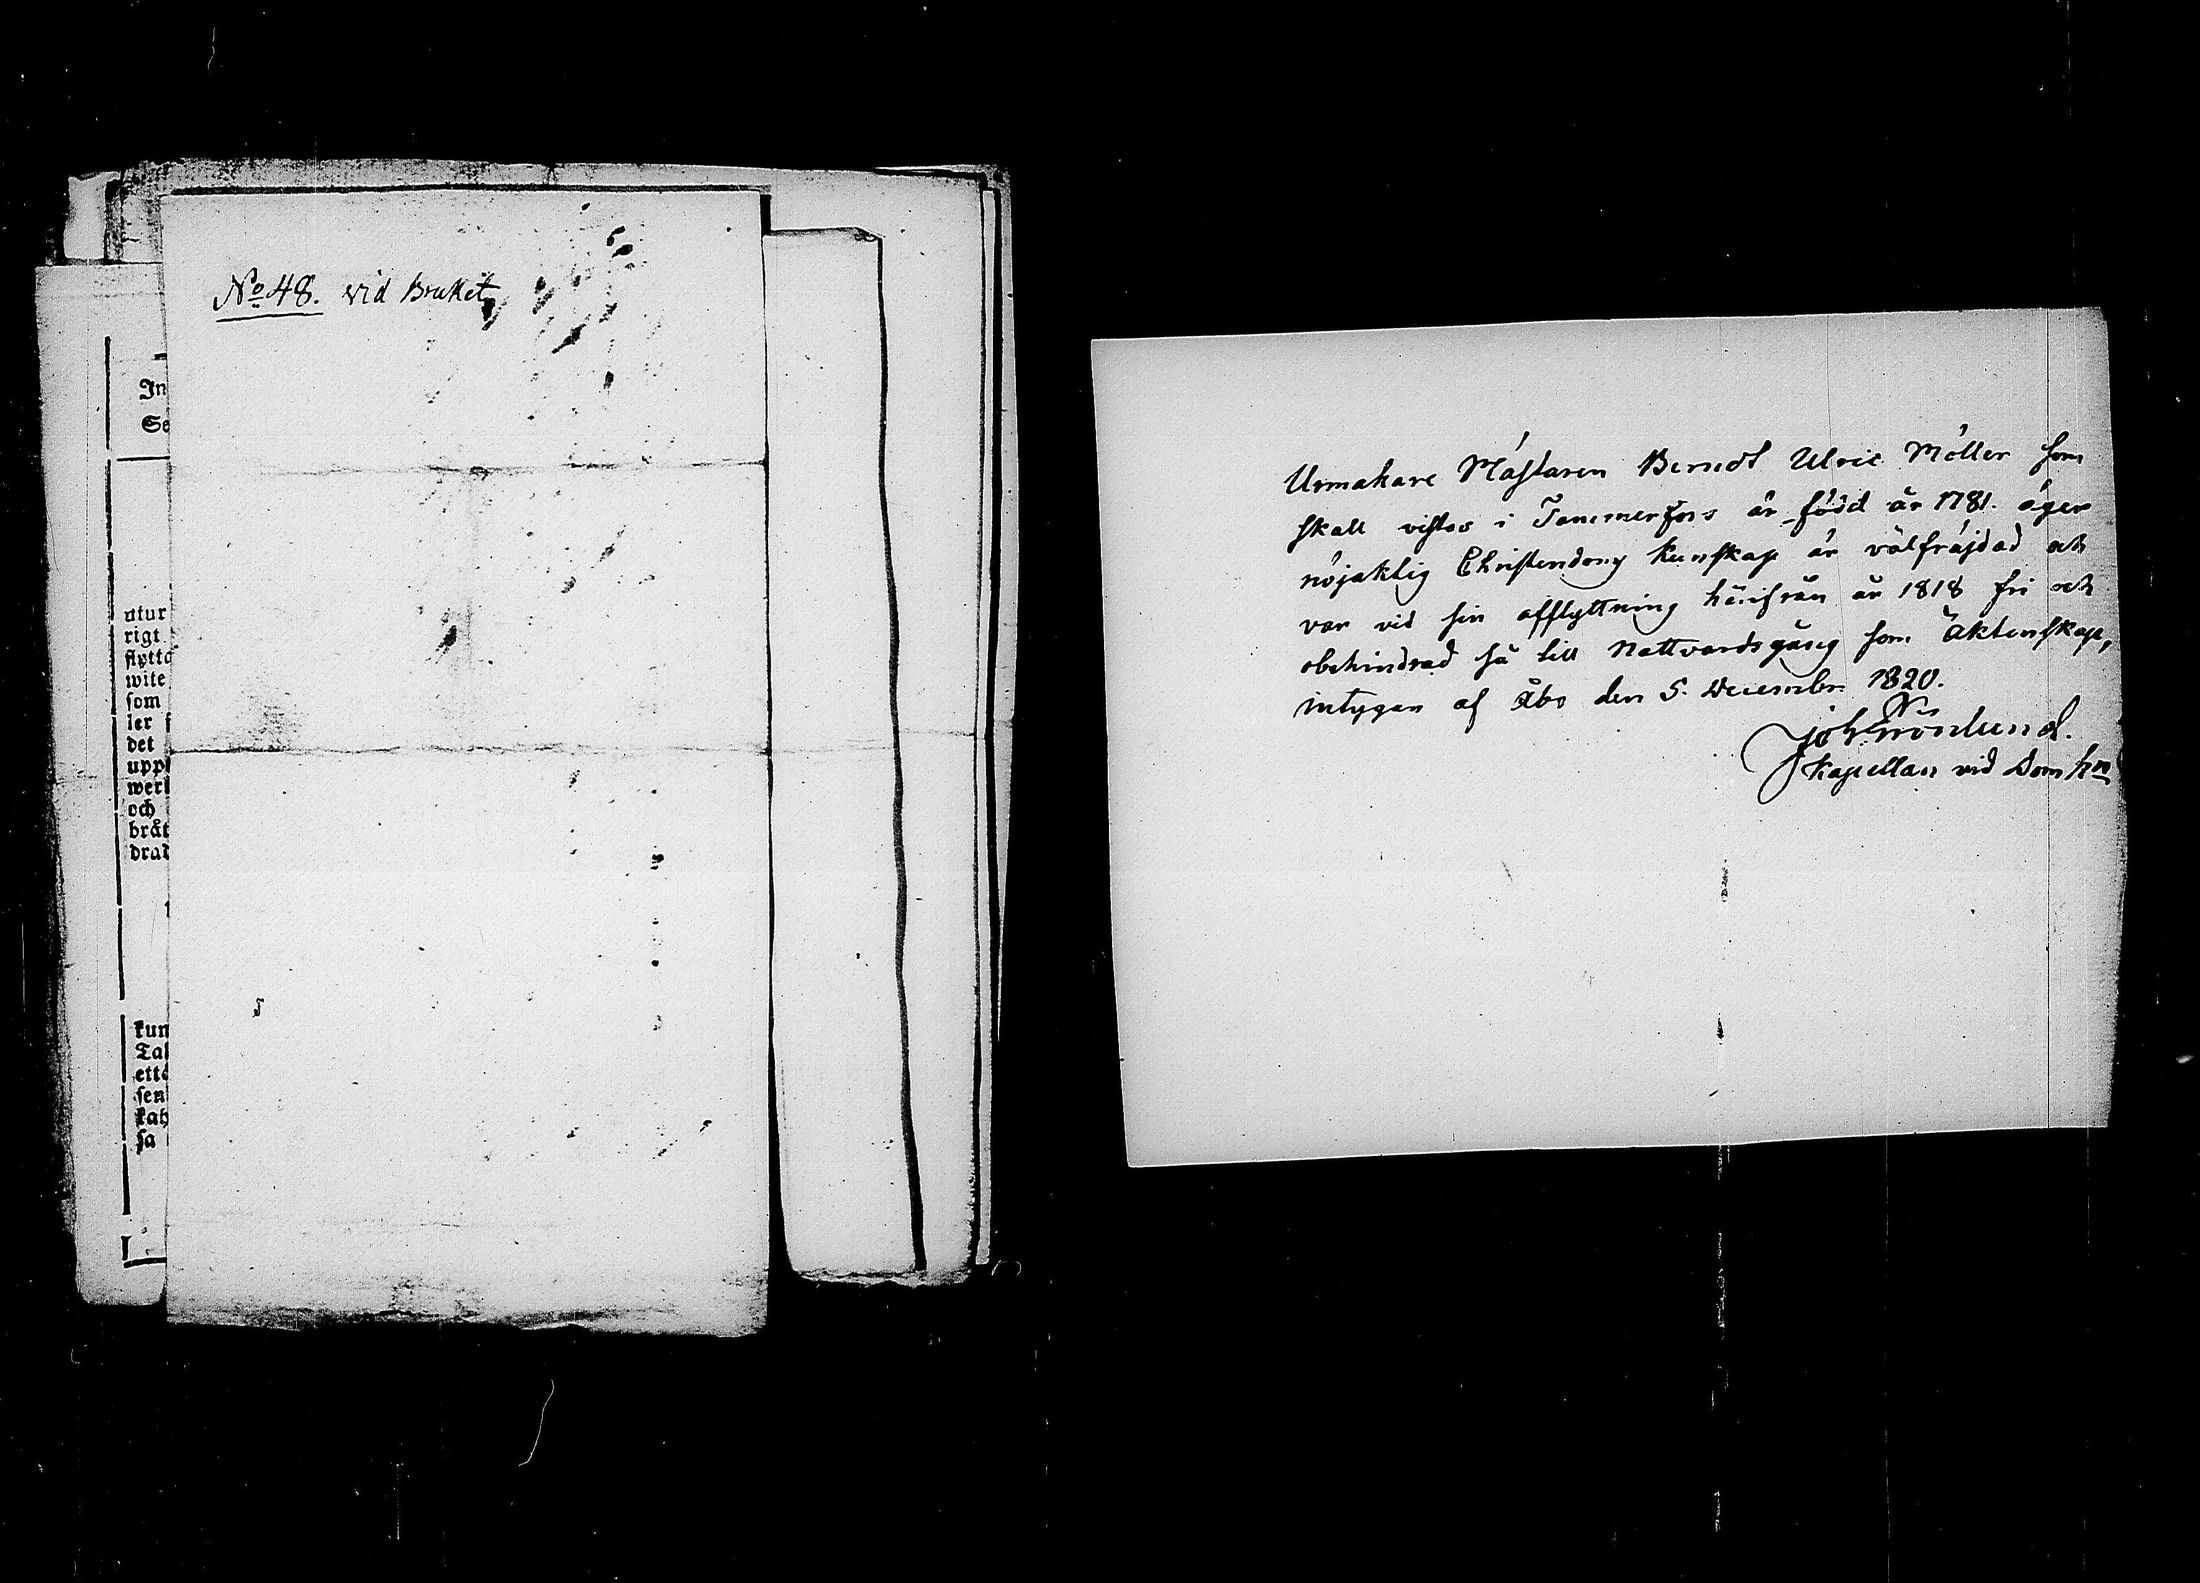 No 48. vid Bruket
In
Se
utur
rigt
flytta
wite
som
ler f
det
upp
werk
och
bråt
drad
kun
Tal
etta
sen
kab
sa
Urmakare Mästaren Berndt Ulric Möller som
skall vistas i Tammerfors är född år 1781. äger
nöjaktig Christendoms kunskap är välfräjdad och
var vid sin afflyttning härifrån år 1818 fri och
obehindrad så till Nattvardsgång som Äktenskap,
intygar af Åbo den 5. December 1820.
Joh Grönlund.
Kapellan vid Domkn